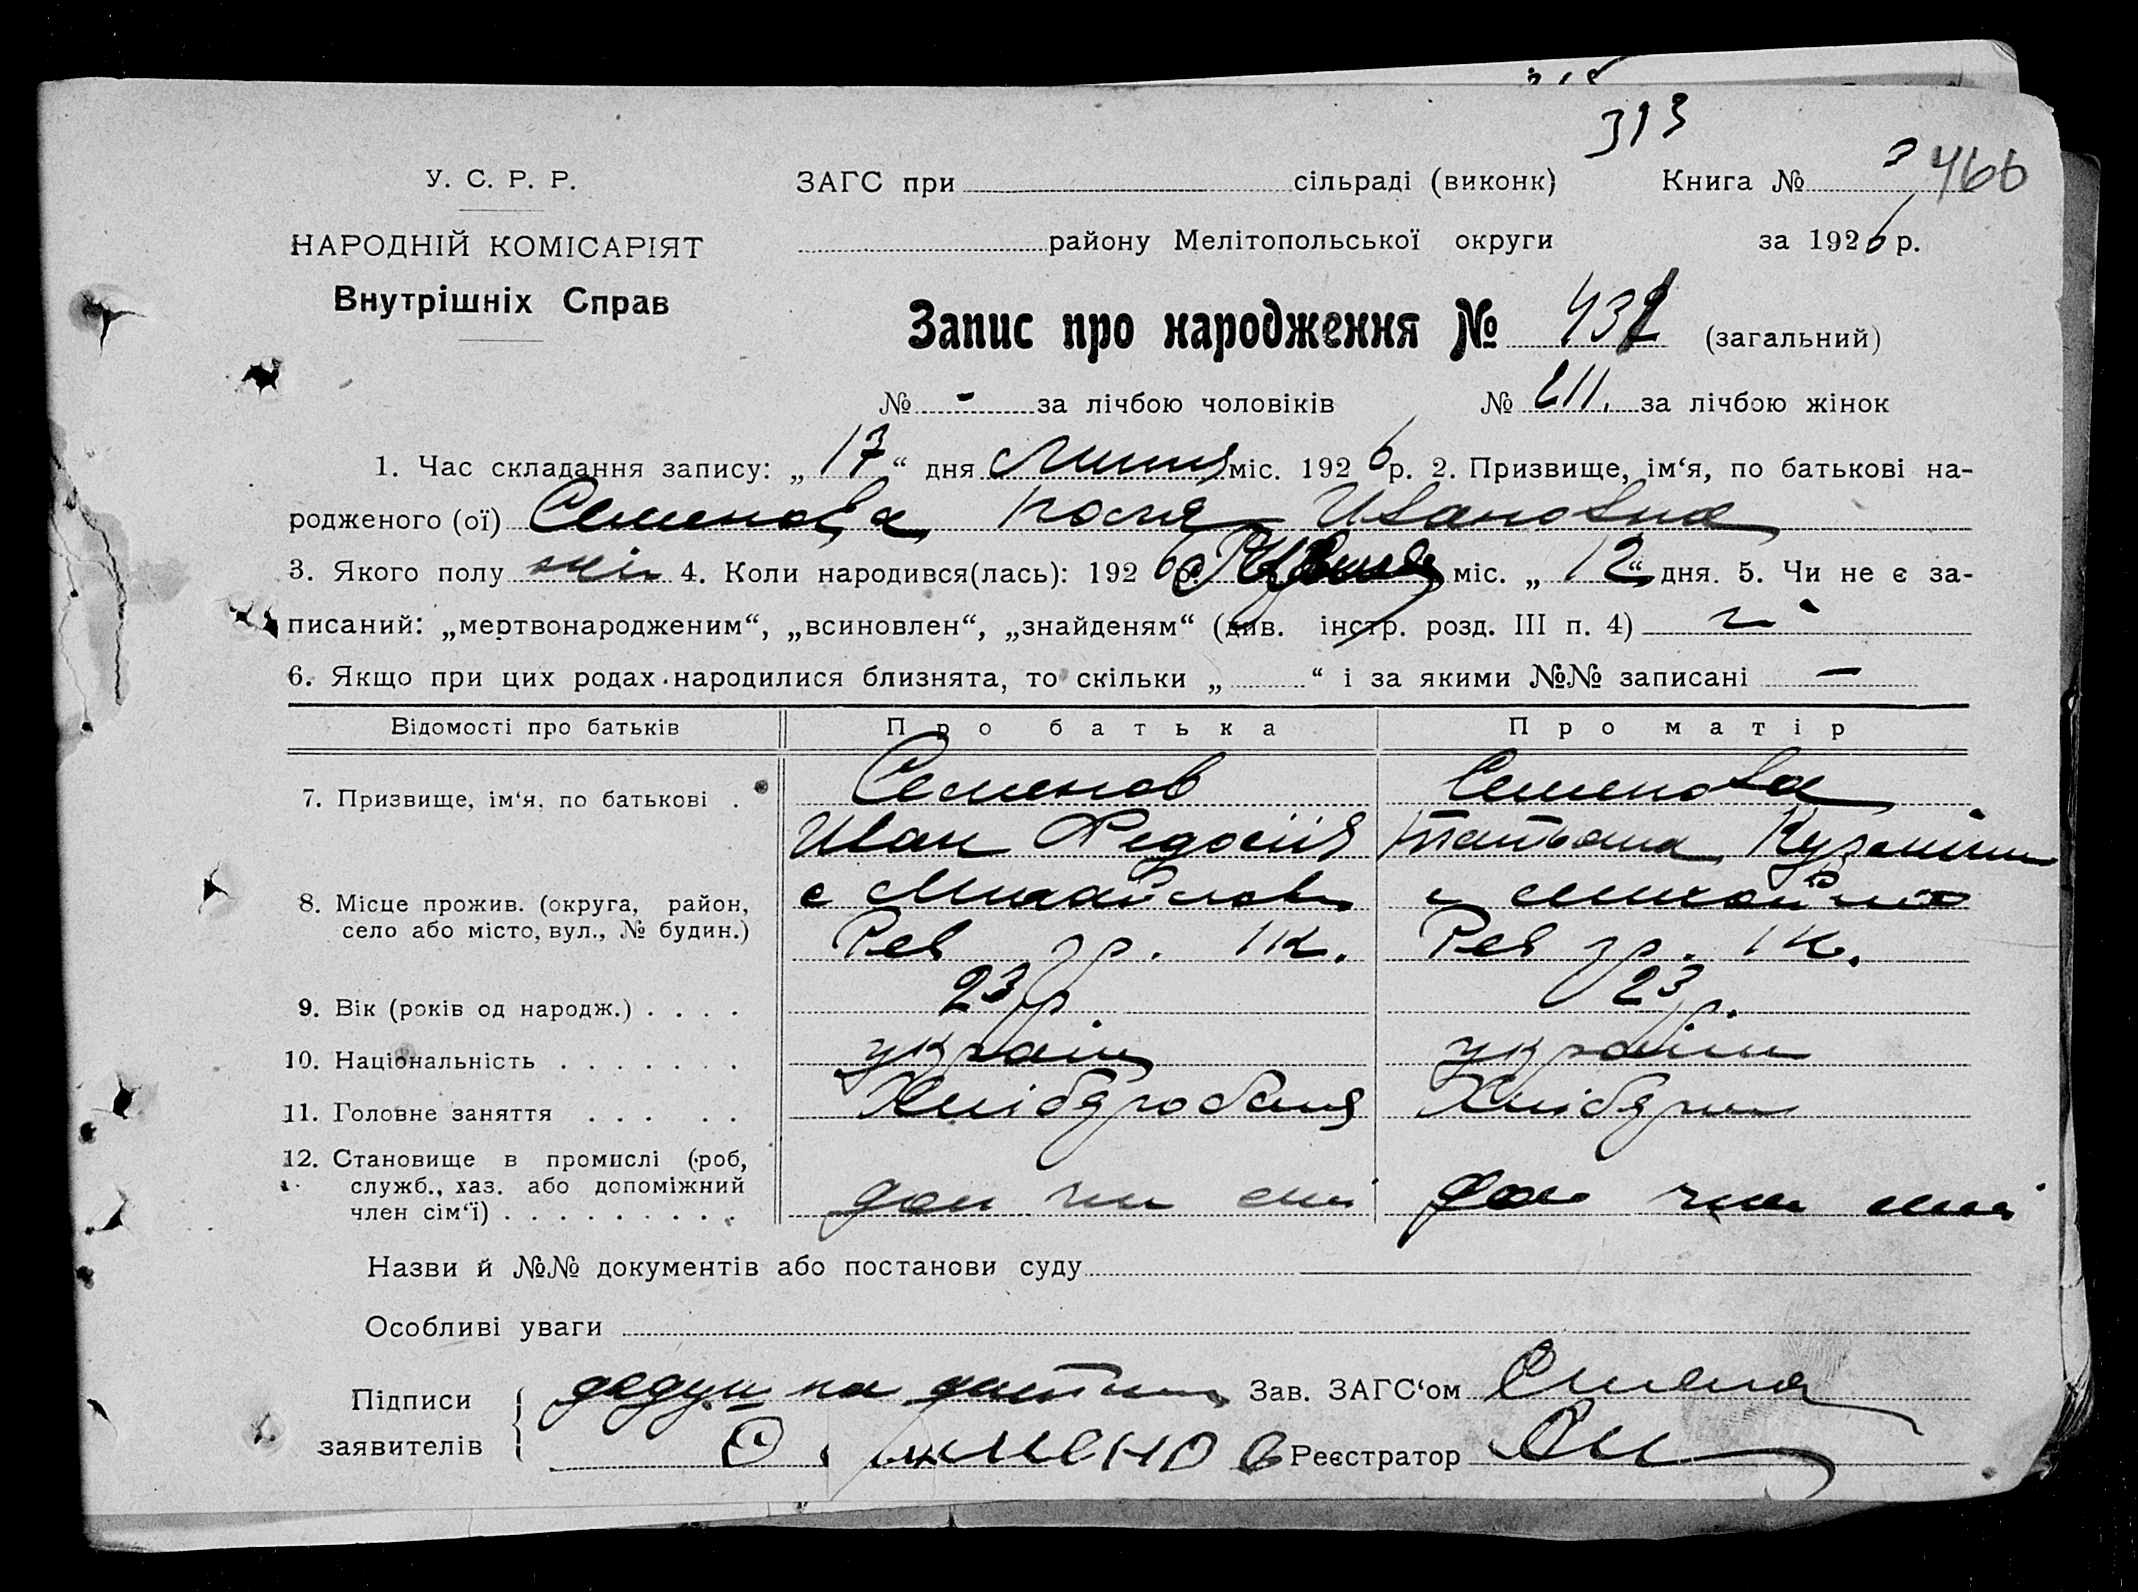 313
У. С. Р. Р.
ЗАГС при сільраді (виконк) Книга № 466
НАРОДНІЙ КОМІСАРІЯТ
району Мелітопольської округи за 1926 р.
Внутрішніх Справ
Запис про народження № 432 (загальний)
№ - за лічбою чоловіків № 211. за лічбою жінок
1. Час складання запису: „17“ дня Липня міс. 1926 р. 2. Призвище, ім‘я, по батькові на-
родженого (ої) Семенова Ивановна
3. Якого полу жін 4. Коли народився(лась): 1926 р. міс. „12“ дня. 5. Чи не є за-
писаний: „мертвонародженим“, „всиновлен“, „знайденям“ (див. інстр. розд. III п. 4) ні
6. Якщо при цих родах народилися близнята, то скільки „ “ і за якими №№ записані —
Відомості про батьків Про батька Про матір
7. Призвище, ім‘я, по батькові . Семенов Семенова
Иван Федосіїв Татьана Кузьмін
8. Місце прожив. (округа, район, с Михайлов с Михайлов
село або місто, вул., № будин.) Рев гр. 1 к. Рев гр. 1 к.
9. Вік (років од народж.) . . . . 23 р 23 р.
10. Національність . . . . . . . україн україн
11. Головне заняття . . . . . Хлібороб
12. Становище в промислі (роб,
служб., хаз. або допоміжний
член сім‘ї) . . . . . . . . . доп чл сімі доп член сімі
Назви й №№ документів або постанови суду
Особливі уваги
Підписи Зав. ЗАГС‘ом
заявителів Реєстратор